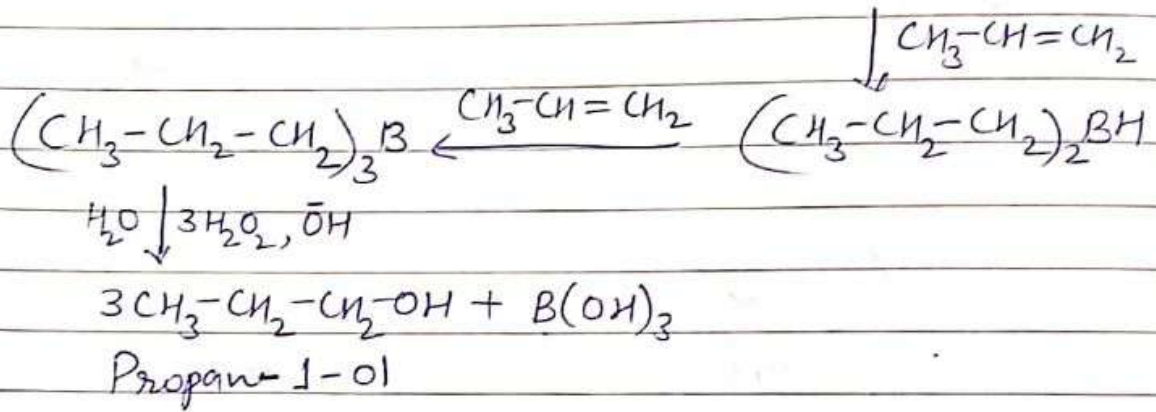 ↓ CH₃-CH=CH₂
(CH₃-CH₂-CH₂)₃B ←CH₃-CH=CH₂ (CH₃-CH₂-CH₂)₂BH
H₂O ↓ 3H₂O₂, ŌH
3CH₃-CH₂-CH₂-OH + B(OH)₃
Propan-1-ol